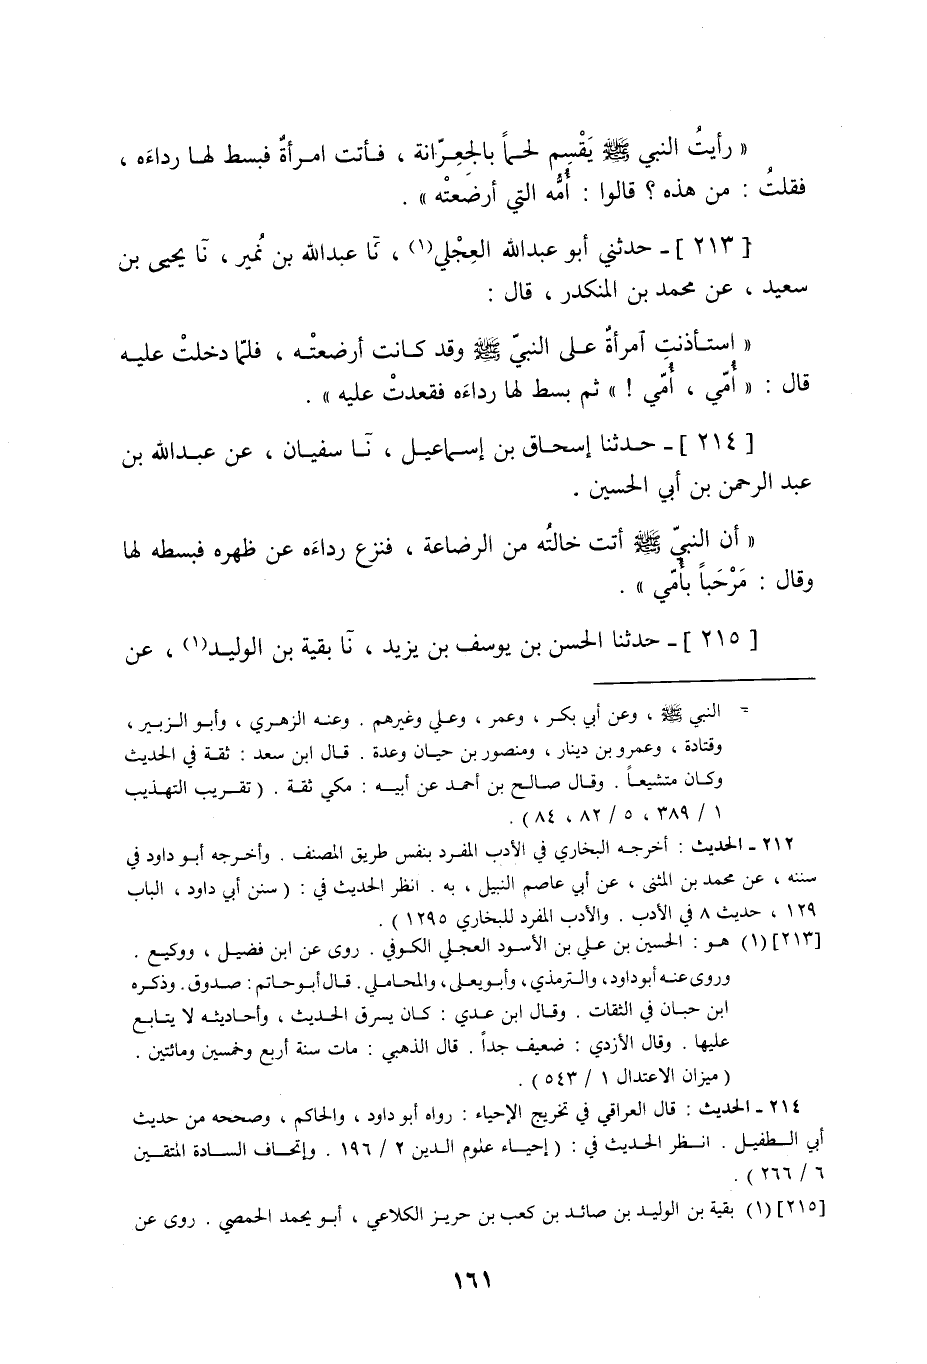 « رأيتُ النبي ﷺ يَقْسِم لحماً بالجِعِرّانة ، فـأتت امـرأةٌ فبسط لهـا رداءَه ،
فقلتُ : من هذه ؟ قالوا : أُمُّه التي أرضعَتْه » .
[ ٢١٣ ] ـ حدثني أبو عبدالله العِجْلي(١) ، نَا عبدالله بن نُمير ، نَا يحيى بن
سعيد ، عن محمد بن المنكدر ، قال :
« استـأذنتِ آمرأةٌ على النبيّ ﷺ وقد كـانت أرضعتْـه ، فلمّا دخلتْ عليـه
قال : « أُمّي ، أُمّي ! » ثم بسط لها رداءَه فقعدتْ عليه » .
[ ٢١٤ ] ـ حـدثنا إسحـاق بن إسـماعيـل ، نَـا سفيـان ، عن عبـدالله بن
عبد الرحمن بن أبي الحسين .
« أن النبيّ ﷺ أتت خالتُه من الرضاعة ، فنزع رداءَه عن ظهره فبسطه لها
وقال : مَرْحَباً بأُمّي » .
[ ٢١٥ ] ـ حدثنا الحسن بن يوسف بن يزيد ، نَا بقية بن الوليـد(١) ، عن
= النبي ﷺ ، وعن أبي بكـر ، وعمر ، وعـلي وغيرهم . وعنـه الزهـري ، وأبـو الـزبـير ،
وقتادة ، وعمرو بن دينار ، ومنصور بن حيان وعدة . قـال ابن سعد : ثقـة في الحديث
وكـان متشيعـاً . وقـال صـالـح بن أحمـد عن أبيـه : مكي ثقـة . ( تقـريب التهـذيب
١ / ٣٨٩ ، ٥ / ٨٢ ، ٨٤ ) .
٢١٢ ـ الحديث : أخرجـه البخاري في الأدب المفـرد بنفس طريق المصنف . وأخـرجه أبـو داود في
سننه ، عن محمد بن المثنى ، عن أبي عاصم النبيل ، به . انظر الحديث في : ( سنن أبي داود ، الباب
١٢٩ ، حديث ٨ في الأدب . والأدب المفرد للبخاري ١٢٩٥ ) .
[٢١٣](١) هـو : الحسين بن عـلي بن الأسـود العجـلي الكـوفي . روى عن ابن فضيـل ، ووكيـع .
وروى عنـه أبو داود ، والـترمذي ، وأبـو يعـلى ، والمحامـلي . قـال أبـو حاتم : صدوق . وذكـره
ابن حبـان في الثقات . وقـال ابن عـدي : كـان يسرق الحـديث ، وأحاديثـه لا يتـابـع
عليها . وقال الأزدي : ضعيف جداً . قال الذهبي : مات سنة أربع وخمسين ومائتين .
( ميزان الاعتدال ١ / ٥٤٣ ) .
٢١٤ ـ الحديث : قال العراقي في تخريج الإحياء : رواه أبو داود ، والحاكم ، وصححه من حديث
أبي الـطفيـل . انـظر الحـديث في : ( إحيـاء علوم الـدين ٢ / ١٩٦ . وإتحـاف السـادة المتقـين
٦ / ٢٦٦ ) .
[٢١٥](١) بقية بن الوليـد بن صائـد بن كعب بن حريـز الكلاعي ، أبـو يحمد الحمصي . روى عن
١٦١